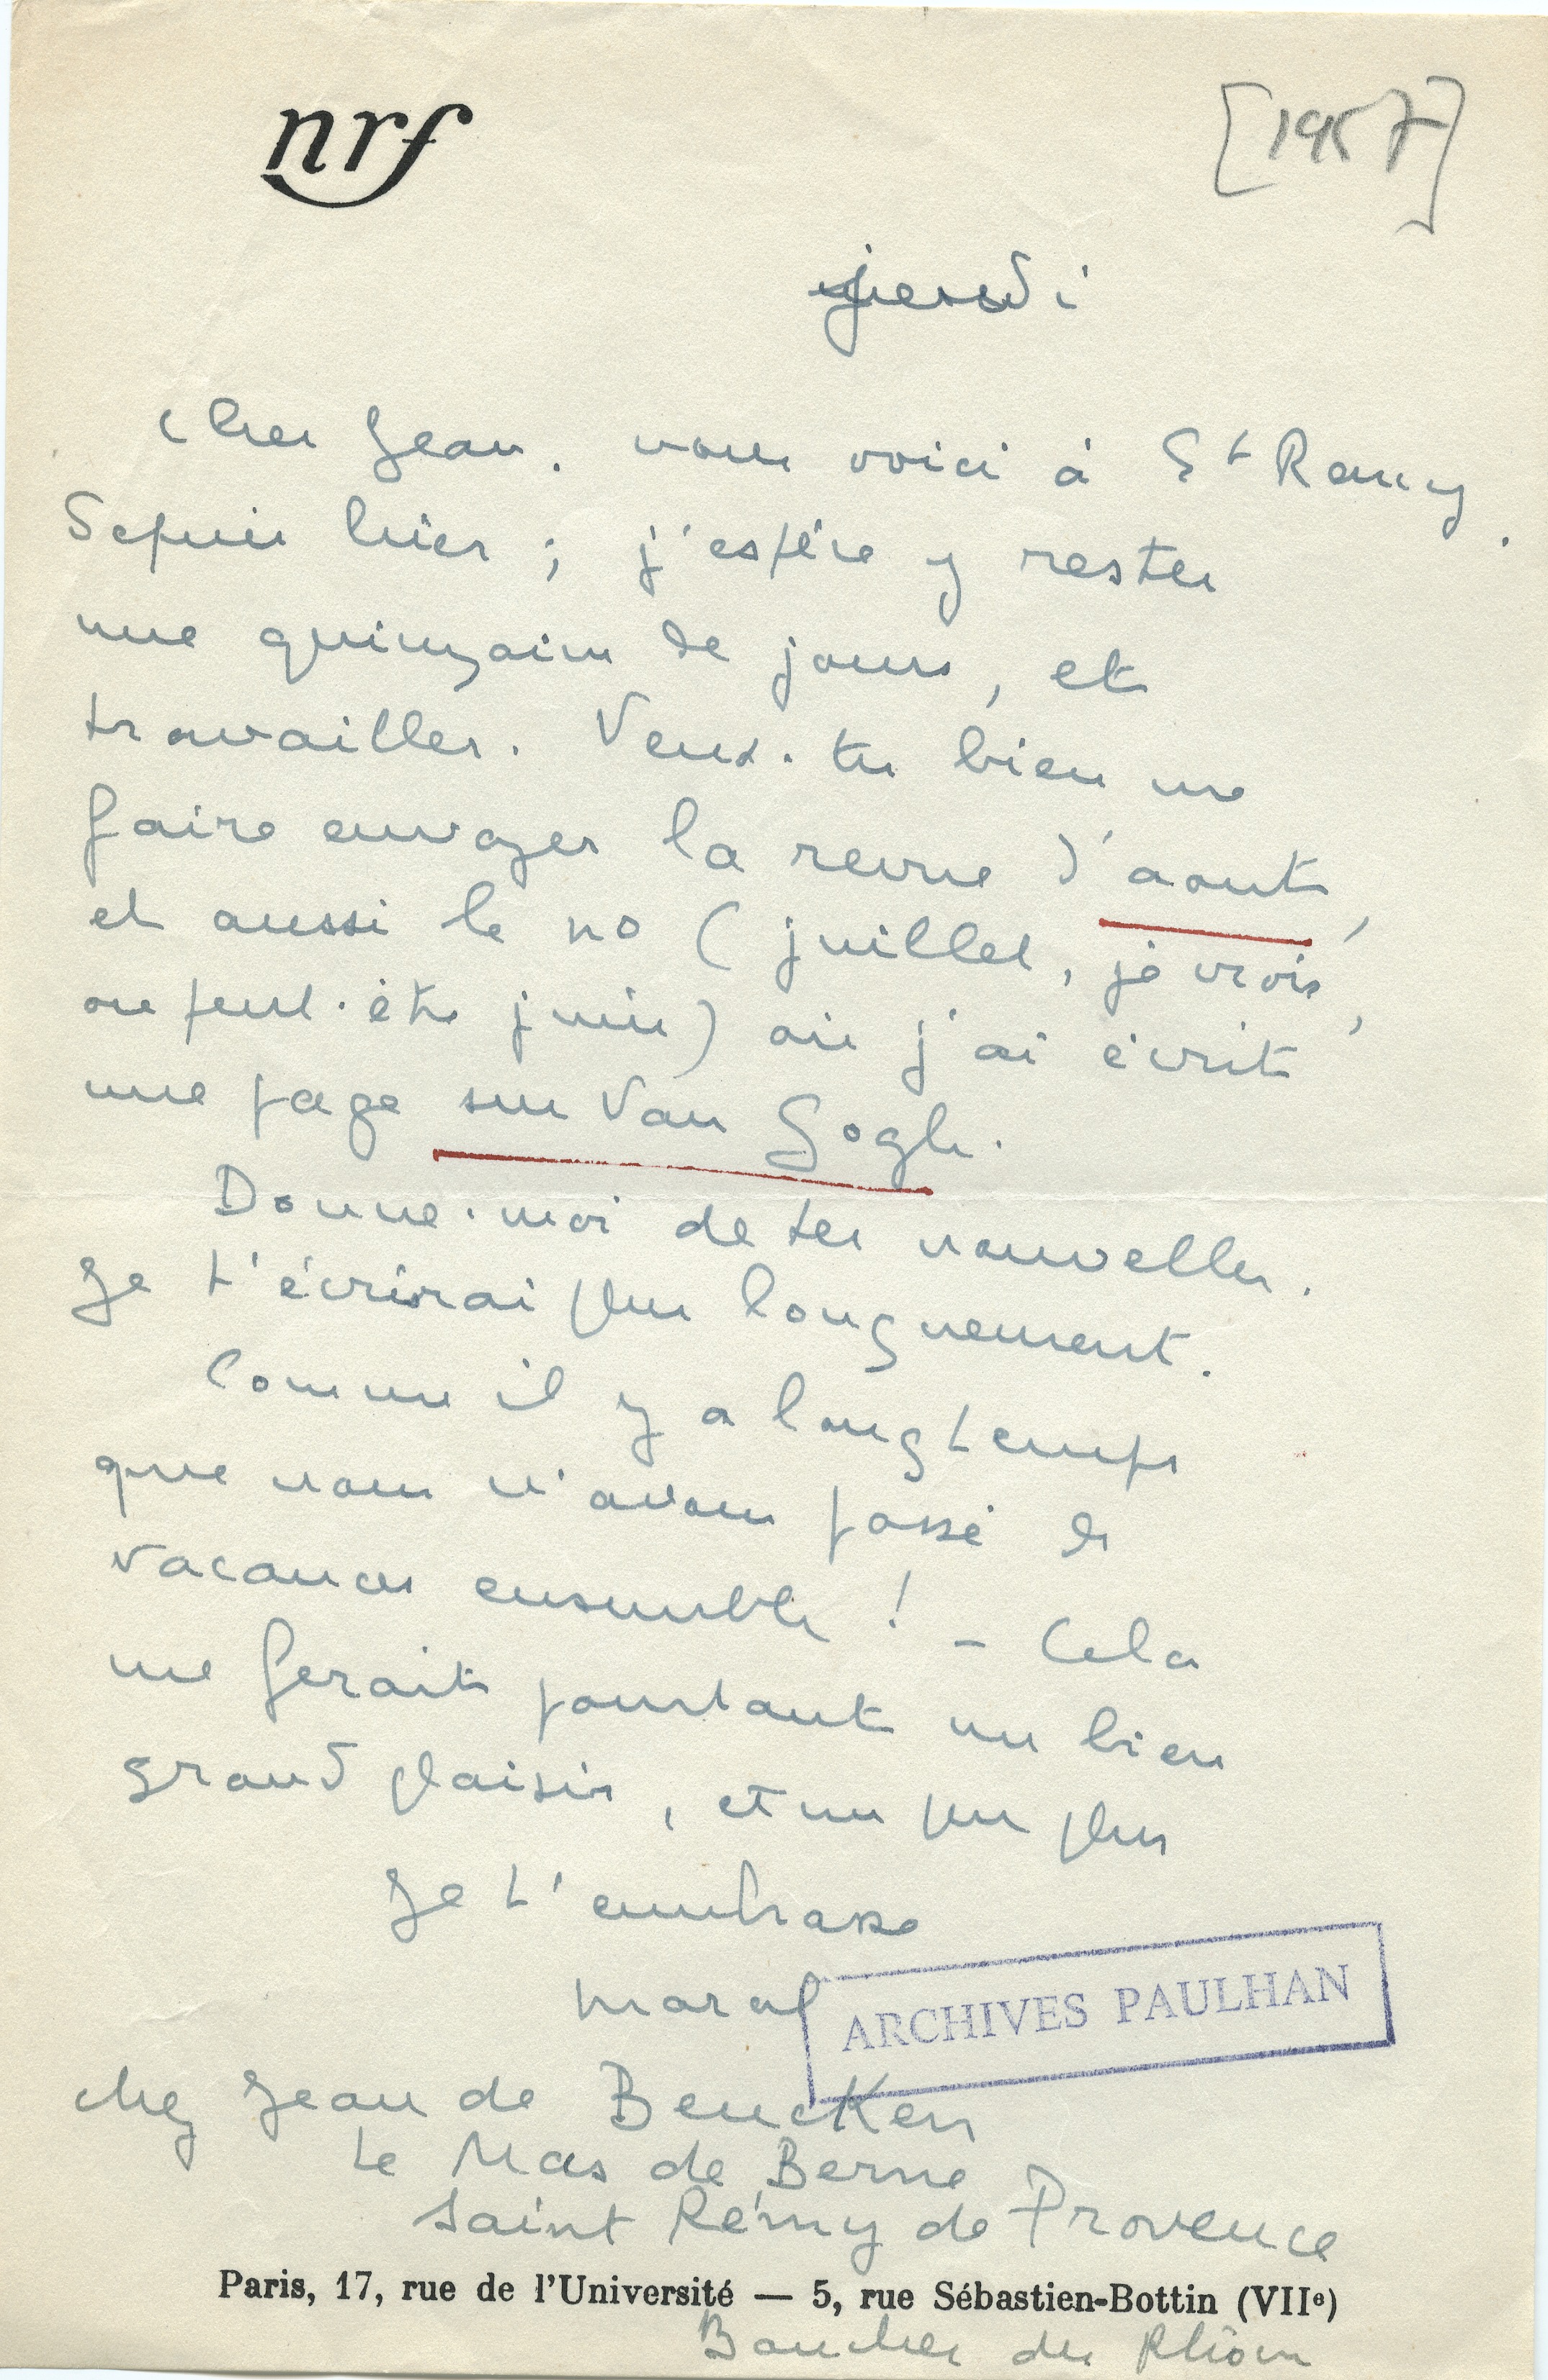 nrf
[1957]
jeudi
Cher Jean. nous voici à St Remy.
depuis hier ; j'espère y rester
une quinzaine de jours, et
travailler. Veux-tu bien me
faire envoyer la revue d'aout,
et aussi le no (juillet, je crois,
ou peut-être juin) où j'ai écrit
une page sur Van Gogh.
Donne-moi de tes nouvelles.
Je t'écrirai plus longuement.
Comme il y a longtemps
que nous n'avons passé de
vacances ensemble ! – Cela
me ferait pourtant un bien
grand plaisir, et un peu plus
Je t'embrasse
Marcel
ARCHIVES PAULHAN
chez Jean de Beucken
Le Mas de Berne
Saint Rémy de Provence
Paris, 17, rue de l'Université — 5, rue Sébastien-Bottin (VIIe)
Bouches du Rhône